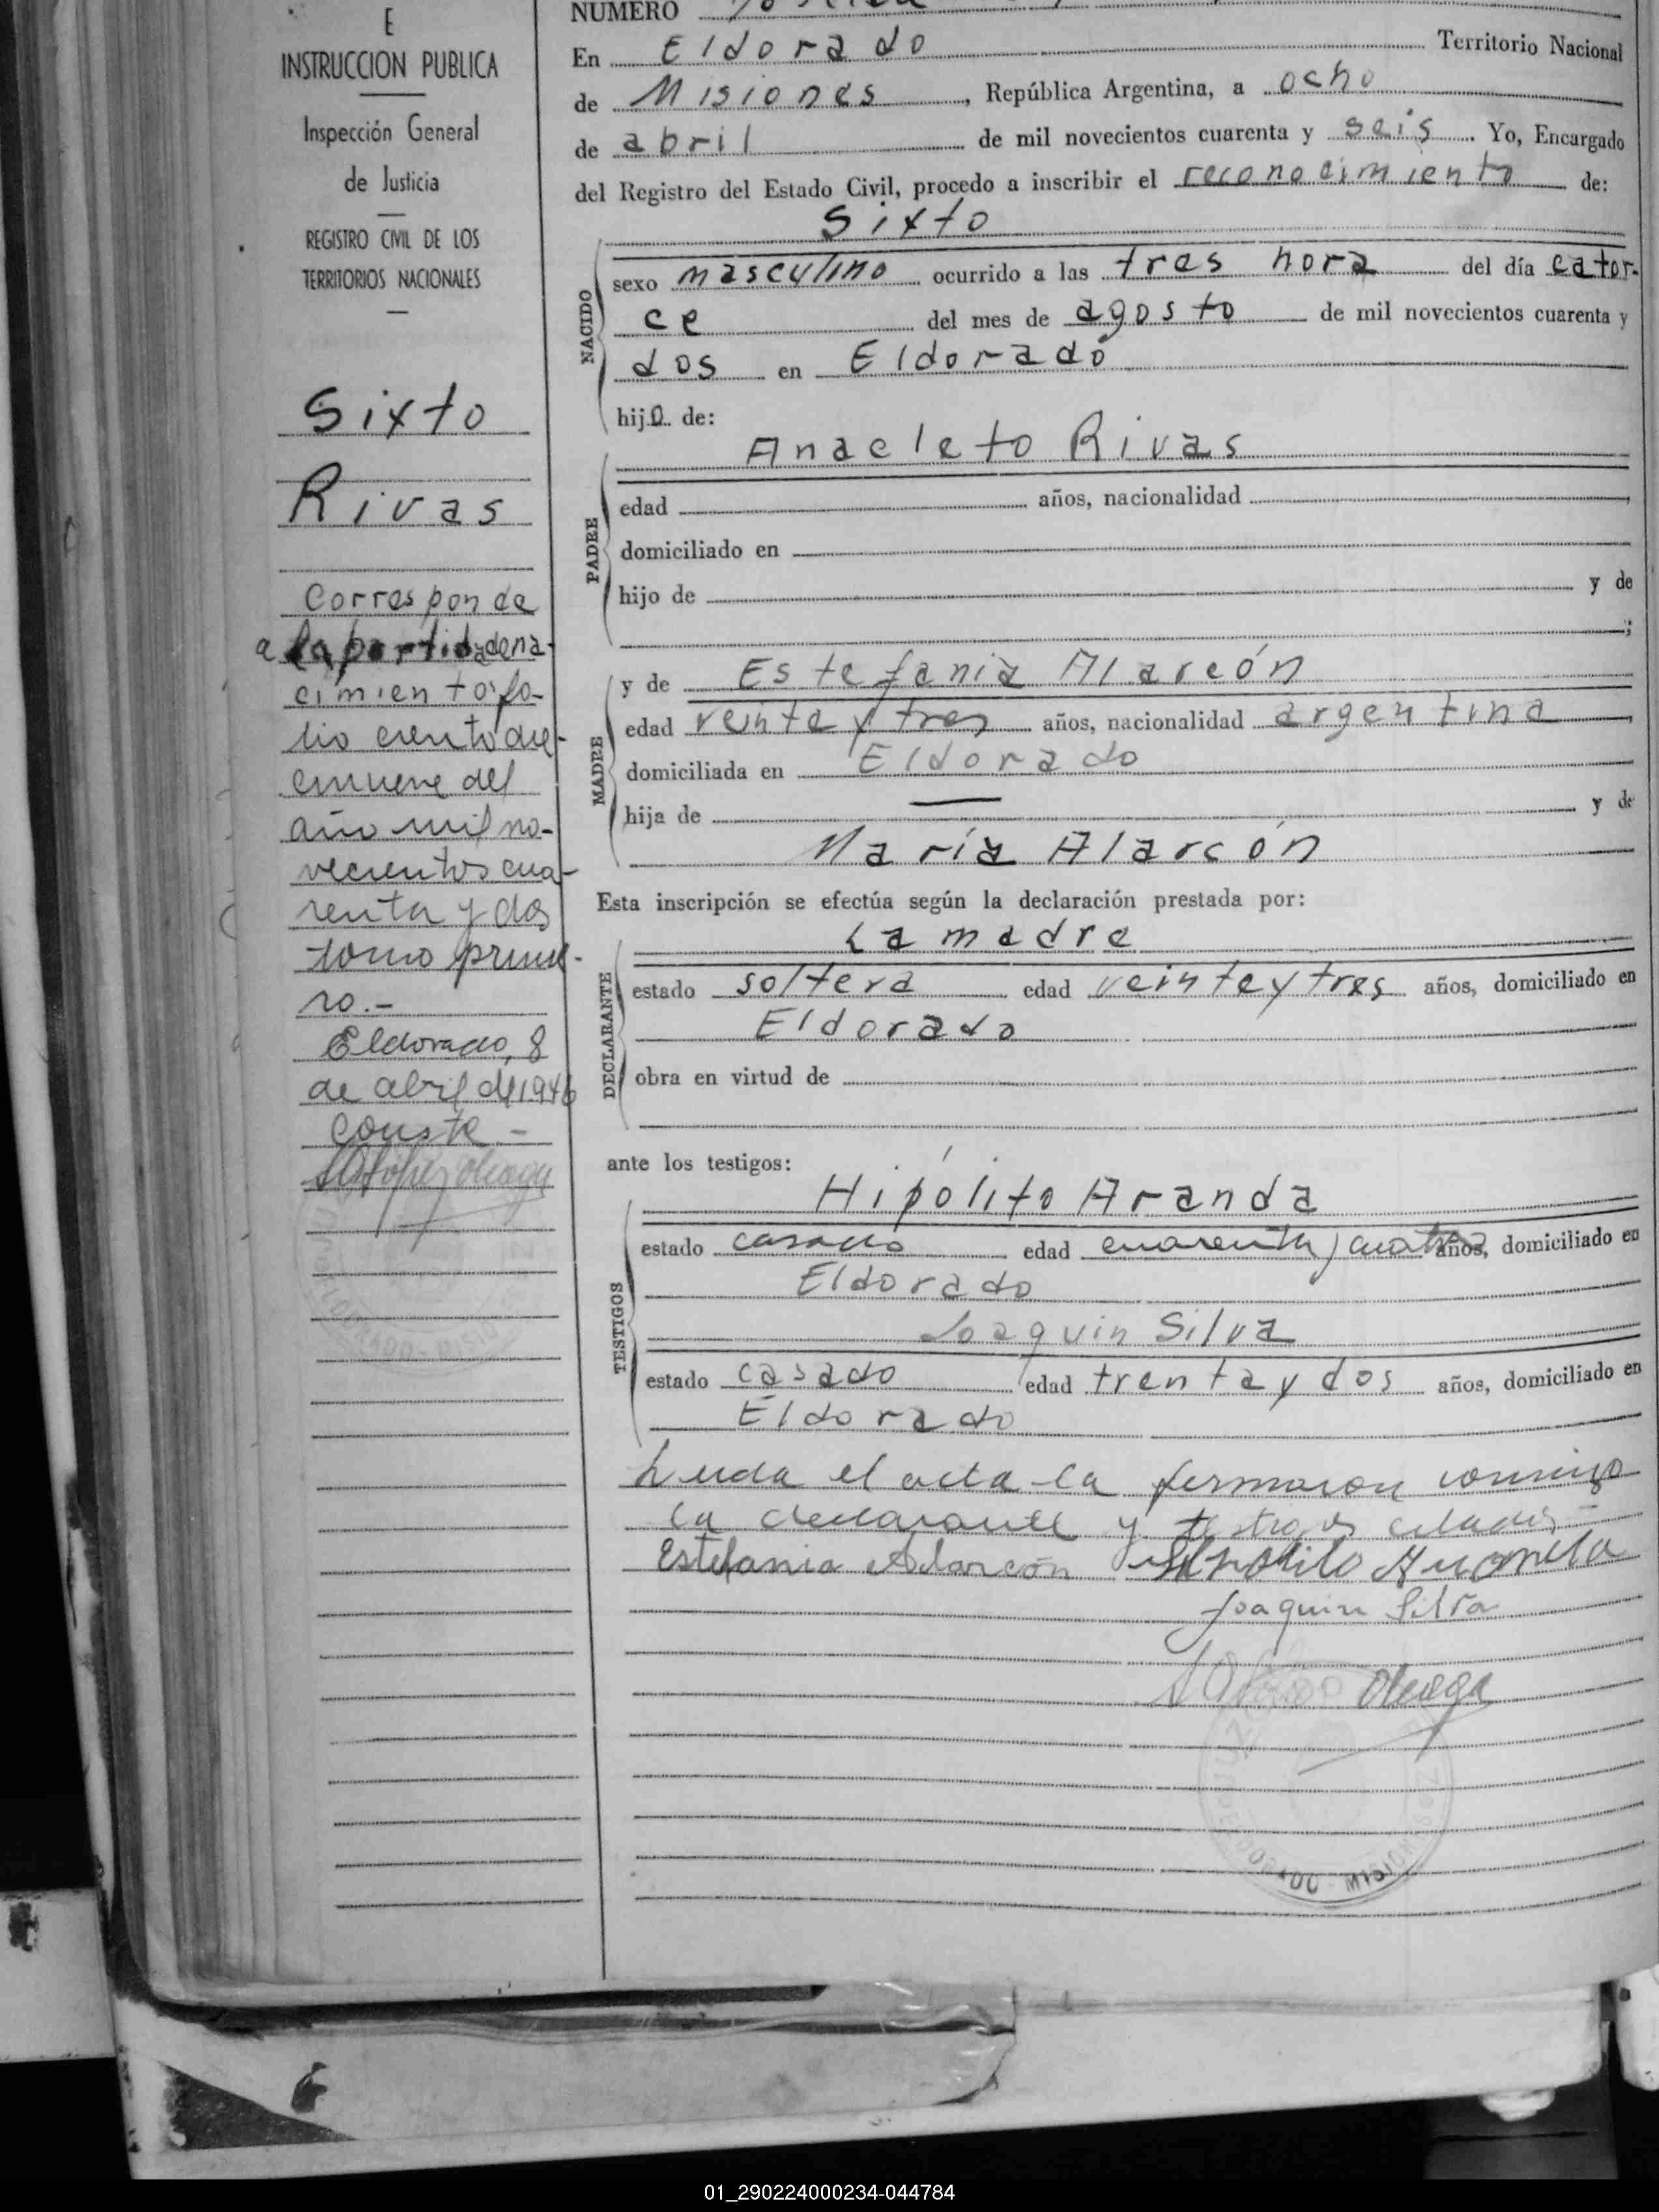 E
INSTRUCCION PUBLICA
Inspección General
de Justicia
REGISTRO CIVIL DE LOS
TERRITORIOS NACIONALES
Sixto
Rivas
Corresponde
a la partida de na-
cimiento: fo-
lio ciento die-
cinueve del
año mil no-
vecientos cua-
renta y dos
tomo prime-
ro.-
Eldorado, 8
de abril de 1946
Conste -
NUMERO
En Eldorado Territorio Nacional
de Misiones, República Argentina, a ocho
de abril de mil novecientos cuarenta y seis. Yo, Encargado
del Registro del Estado Civil, procedo a inscribir el reconocimiento de:
Sixto
NACIDO
sexo masculino ocurrido a las tres hora del día cator-
ce del mes de agosto de mil novecientos cuarenta y
dos en Eldorado
hijo de:
PADRE
Anacleto Rivas
edad años, nacionalidad
domiciliado en
hijo de y de
;
MADRE
y de Estefania Alarcón
edad veinte y tres años, nacionalidad argentina
domiciliada en Eldorado
hija de — y de
María Alarcón
Esta inscripción se efectúa según la declaración prestada por:
DECLARANTE
La madre
estado soltera edad veinte y tres años, domiciliado en
Eldorado
obra en virtud de
ante los testigos:
TESTIGOS
Hipólito Aranda
estado casado edad cuarenta y cuatro años, domiciliado en
Eldorado
Joaquin Silva
estado casado edad trenta y dos años, domiciliado en
Eldorado
Leida el acta la firmaron conmigo
la declarante y testigos citados
Estefania Alarcón Hipolito Aranda
Joaquin Silva
ELDORADO MISIONES
01_290224000234-044784